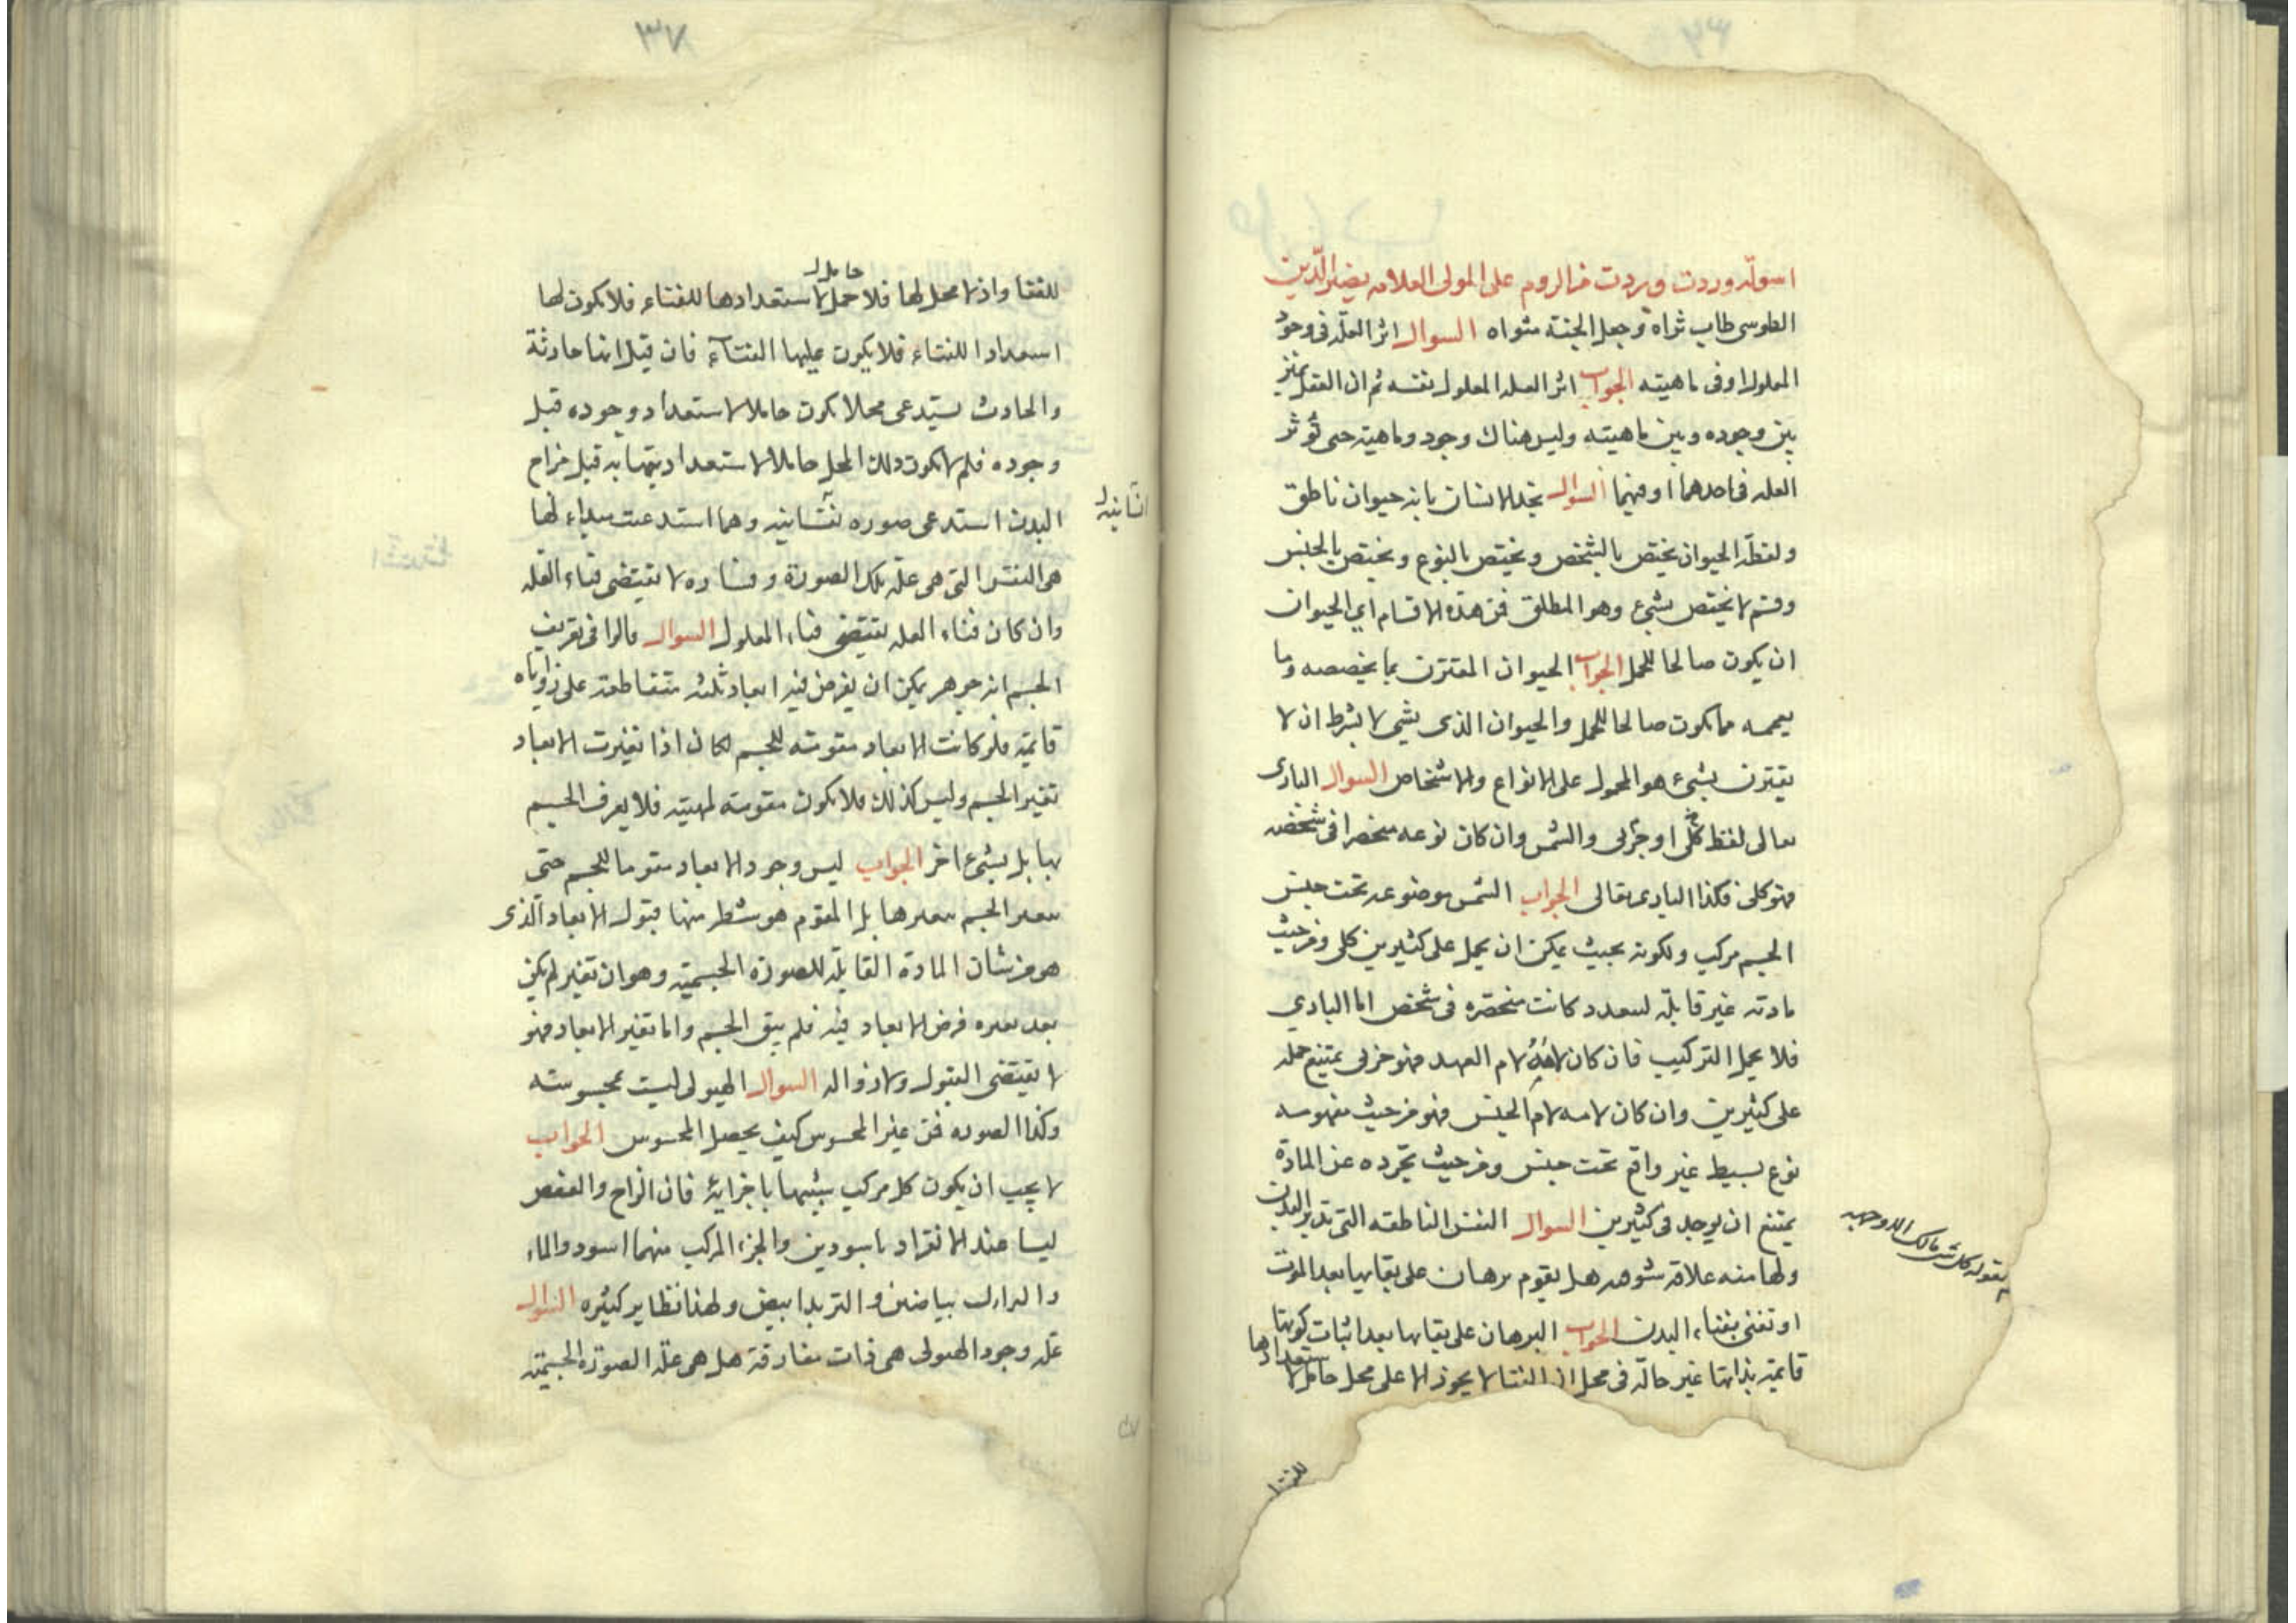 اسولة وردت وردت من الروم على المولى العلامه نصير الدين
الطوسى طاب ثراه وجعل الجنة مثواه السوال اثر العلة فى وجود
المعلول او فى ماهيته الجواب اثر العله المعلول نفسه ثم ان العقل يميز
بين وجوده وبين ماهيته وليس هناك وجود وماهية حتى تؤثر
العله فى احدهما او فيهما السوال نحد الانسان بانه حيوان ناطق
ولفظة الحيوان يختص بالشخص ويختص بالنوع ويختص بالجنس
وقسم لا يختص بشىء وهو المطلق فمن هذه الاقسام اى الحيوان
ان يكون صالحا للحمل الجواب الحيوان المقترن بما يخصصه وما
يعممه مما يكون صالحا للحمل والحيوان الذى شىء لا بشرط ان لا
يقترن بشىء هو المحمول على الانواع والاشخاص السوال البارى
تعالى لفظ كلى او جزئى والشمس وان كان نوعه منحصرا فى شخصه
فهو كلى فكذا البارى تعالى الجواب الشمس موضوعه تحت جنس
الجسم مركب ولكونه بحيث يمكن ان يحمل على كثيرين كلى ومن حيث
مادته غير قابلة لتعدد كانت منحصره فى شخص اما البارى
فلا يحمل التركيب فان كان لامه لام العهد فهو جزئى يمتنع حمله
على كثيرين وان كان لامه لام الجنس فهو من حيث مفهومه
نوع بسيط غير واقع تحت جنس ومن حيث تجرده عن المادة
يمتنع ان يوجد فى كثيرين السوال النفس الناطقه التى تدبر البدن
ولها منه علاقة شوهد هل يقوم برهان على بقايها بعد الموت
لقوله كل شىء هالك الا وجهه
او تفنى بفناء البدن الجواب البرهان على بقايها بعد اثبات كونها
قايمة بذاتها غير حالة فى محل ان الفنا لا يجوز الا على محل حامل لاستعدادها
للفنا
٣٧
للفنا واذ لا محل لها فلا حامل لاستعدادها للفناء فلا يكون لها
استعداد للفناء فلا يكون عليها الفناء فان قيل انها حادثة
والحادث يستدعى محلا يكون حاملا لاستعداد وجوده قبل
وجوده فلم لا يكون ذلك المحل حاملا لاستعداد قبل مزاج
البدن استدعى صوره وهما استدعت مبداء لها
هى النفس التى هى علة تلك الصورة وفساده لا يقتضى فناء العله
وان كان فناء العله يقتضى فناء المعلول السوال قالوا فى تعريف
الجسم انه جوهر يمكن ان يفرض فيه ابعاد ثلثه متقاطعة على زوايا
قايمة فلو كانت الابعاد مقومته للجسم لكان اذا تغيرت الابعاد
تغير الجسم وليس كذلك فلا يكون مقومته لمهيته فلا يعرف الجسم
بها بل بشىء اخر الجواب ليس وجود الابعاد مقوما للجسم حتى
يتغير الجسم بتغيرها بل المقوم هو شطر منها قبول الابعاد الذى
هو من شان المادة القابلة للصورة الجسمية وهو ان تغير لم يكن
بعد تغيره فرض الابعاد فيه فلم يبق الجسم واما تغير الابعاد فهو
لا يقتضى القبول ولا زواله السوال الهيولى ليست بمحسوسته
وكذا الصوره فمن غير المحسوس كيف يحصل المحسوس الجواب
لا يجب ان يكون كل مركب شبيها باجزايه فان الزاج والعفص
ليسا عند الانفراد باسودين والجزء المركب منهما اسود والماء
بياضين والزبد ابيض ولهذا نظاير كثيره السوال
علة وجود الهيولى هى ذات مفارقة هل هى علة الصورة الجسمية